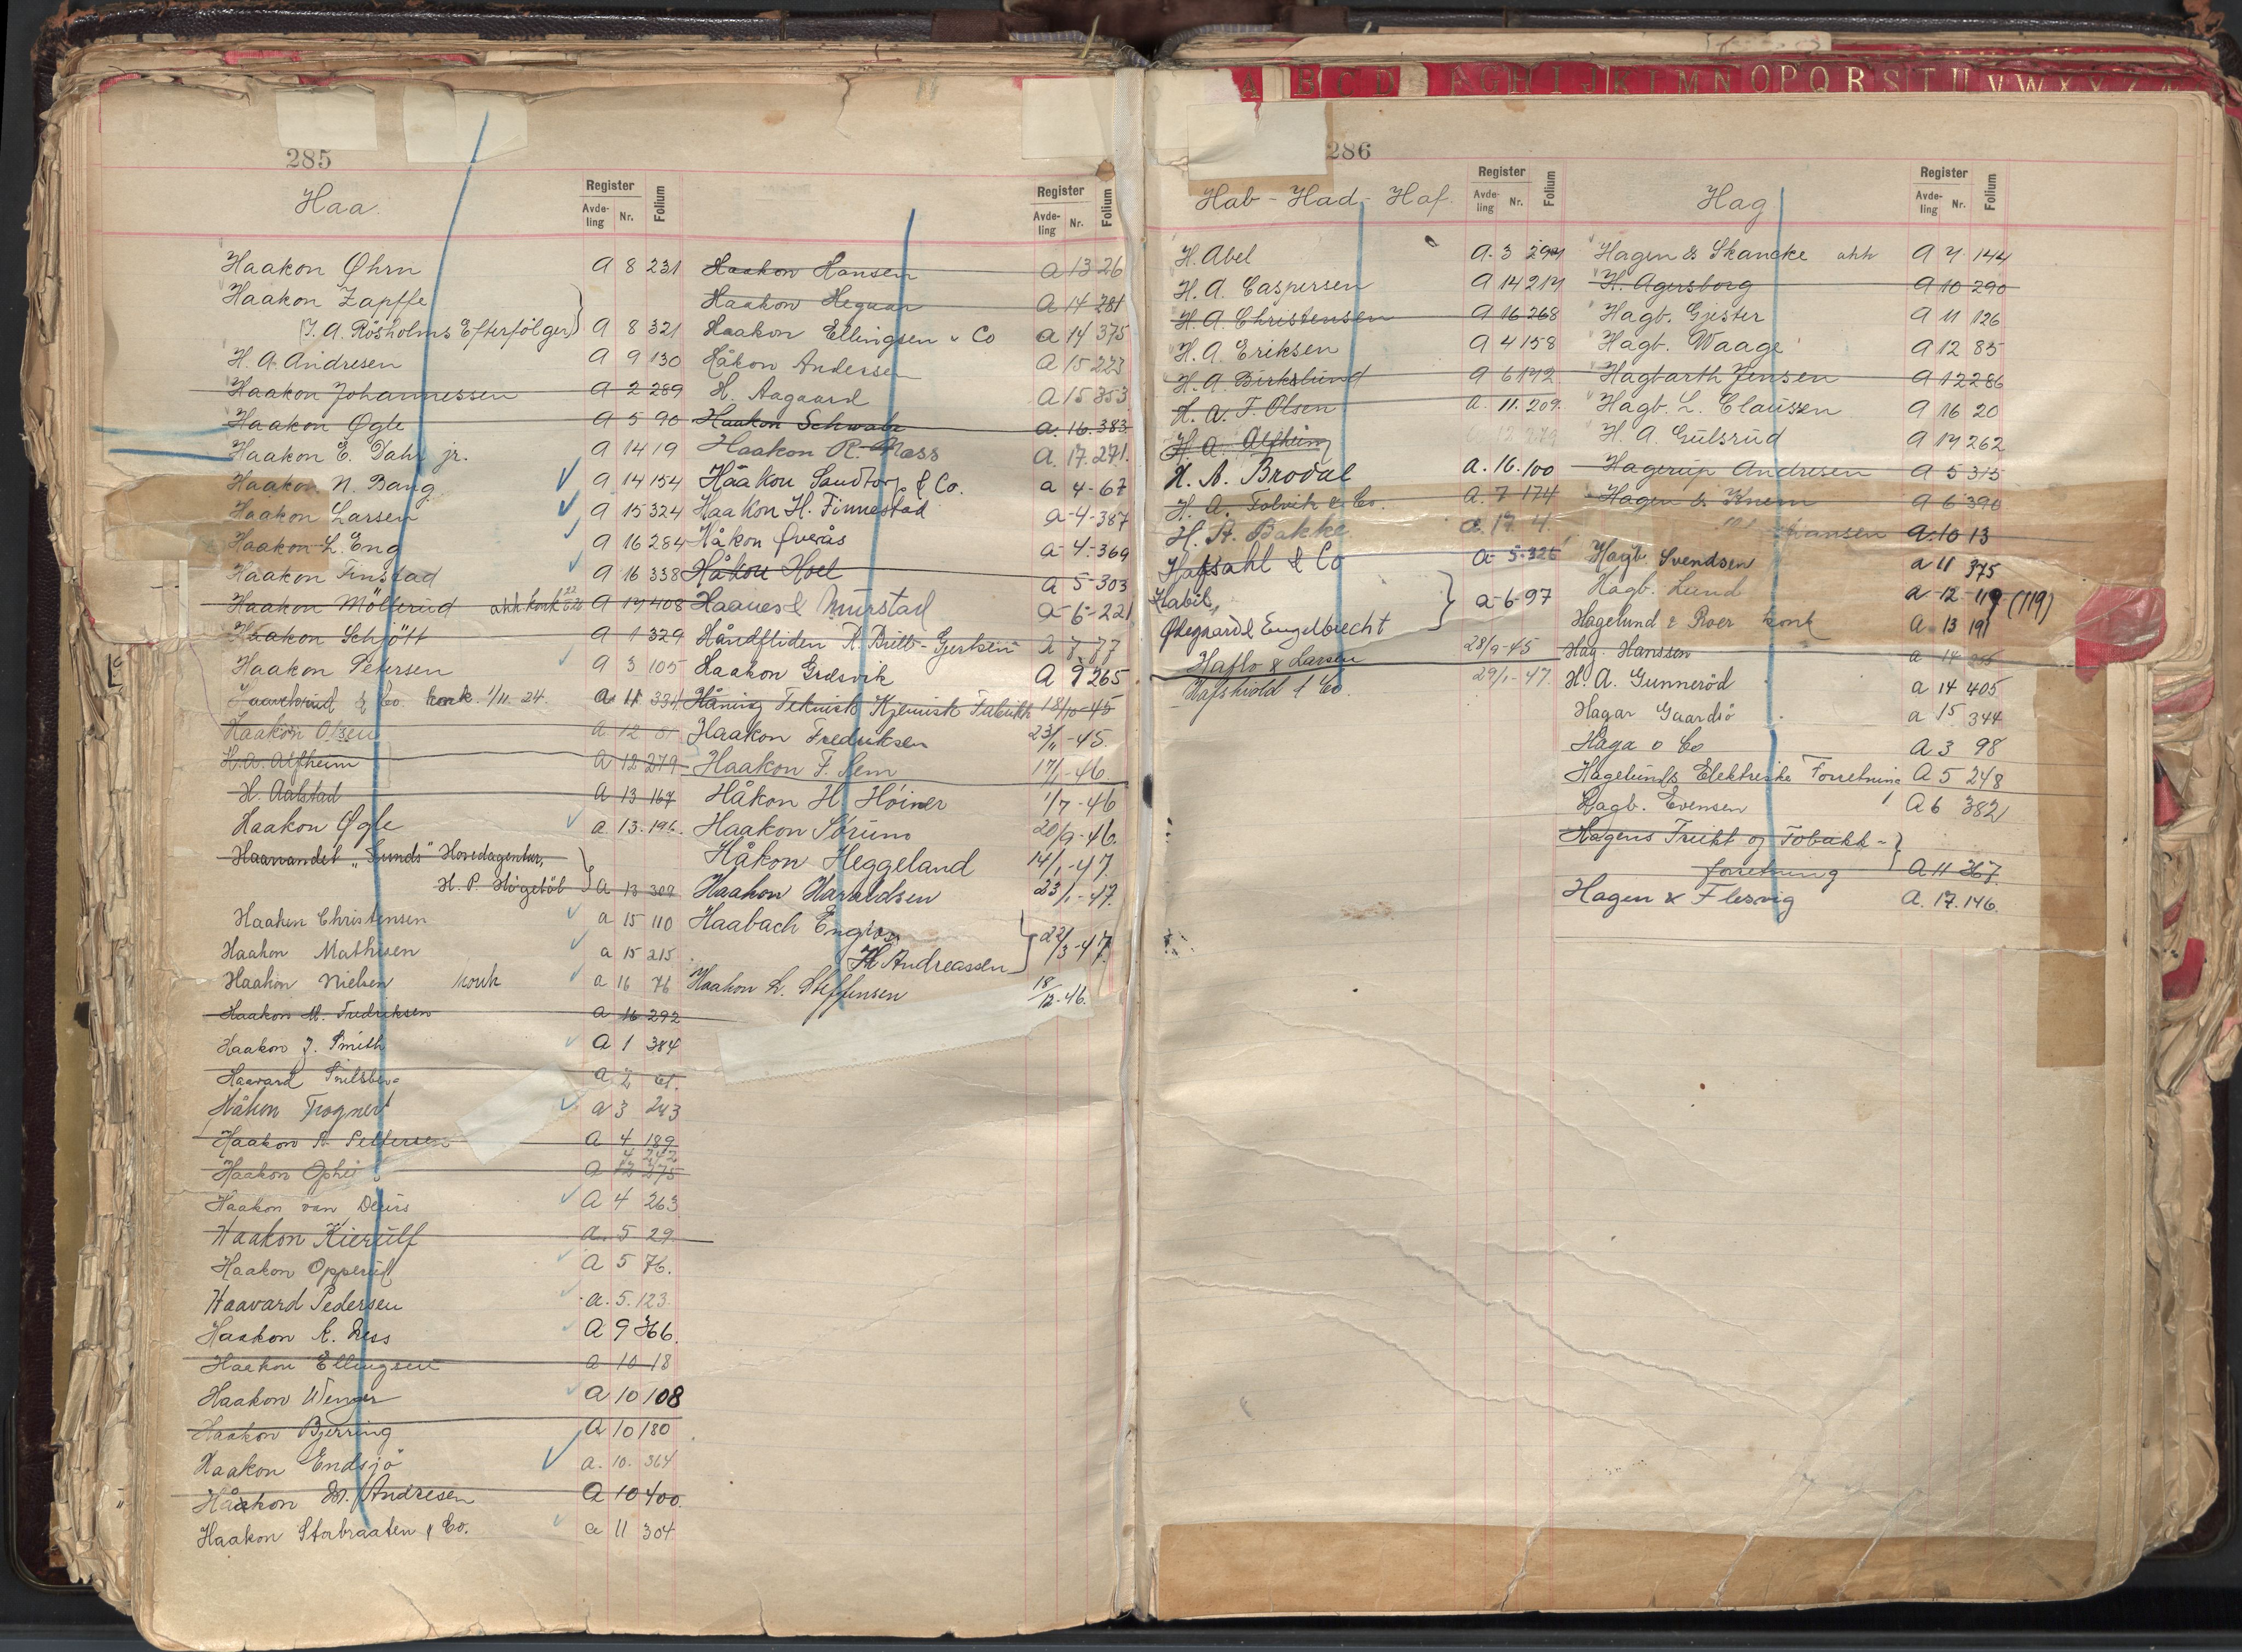 285
Haa.
Register
Avde-
ling
Nr.
Folium
Haakon Øhrn A 8 231
Haakon Zapffe
(J. A. Rösholms Efterfölger) A 8 321
H. A. Andresen A 9 130
Haakon Johannessen A 2 289
Haakon Øgle A 5 90
Haakon E. Dahl jr. A 14 19
Haakon N. Bang A 14 154
Haakon Larsen A 15 324
Haakon L. Eng A 16 284
Haakon Finstad A 16 338
Haakon Möllerud A 17 408
Haakon Schjött A 1 329
Haakon Petersen A 3 105
& Co. konk 1/11. 24. A 11 334
Haakon Olsen A 12 81
H. A. Alfheim A 12 279
H. Aalstad A 13 167
Haakon Øgle A. 13. 196.
Haarvandet "Funds" Hovedagentur,
H. P. Högetöl A 13 309
Haakon Christensen A 15 110
Haakon Mathisen A 15 215
Haakon Nielsen konk A 16 76
Haakon M. Fredriksen A 16 292
Haakon J. Smith A 1 384
Haavard A 2 61.
Håkon Trogner A 3 243
Haakon A. Pettersen A 4 189
4 242
Haakon A 12 275
Haakon van Deurs A 4 263
Haakon Kierulf A. 5 29
Haakon Opperud A 5 76.
Haavard Pedersen A. 5. 123.
Haakon K. Ness A 9 366.
Haakon Ellingsen A 10 18
Haakon Wenger A 10 108
Haakon Bjerring A 10 180
Haakon Endsjö A. 10. 364
Håakon M. Andresen A 10 400.
Haakon Storbraaten & Co. A 11 304
Register
Avde-
ling
Nr.
Folium
Haakon Hansen A 13 26
Haakon Heguar A 14 281
Haakon Ellingsen & Co A 14 375
Håkon Andersen A 15 223
H. Aagaard A 15 353
Haakon Schwalz A. 16. 383.
Haakon R. Næss A. 17. 271.
Håakon Sandtorp & Co. A 4-67
Haakon H. Finnestad A-4-387
Håkon Øverås A-4-369
Håkon Hoel A 5-303
Haanes & Murstad A-6-221
Håndfliden R. Bull-Gjertsen A 7.77
Haakon Gresvik A 9 265
Håning Teknisk Kjemisk Fabrikk 18/10-45
Haakon Fredriksen 23/11-45.
Haakon F. Sem 17/1-46.
Håkon H. Höiner 1/7-46
Haakon Sörum 20/9-46.
Håkon Heggeland 14/1-47.
Haakon Haraldsen 23/1-47.
Haabach Engros
H Andreassen 22/3-47.
Haakon L. Steffensen 18/12-46.
286
Hab - Had - Haf.
Register
Avde-
ling
Nr.
Folium
H. Abel A. 3 294
H. A. Caspersen A 14 217
H. A. Christensen A 16 268
H. A. Eriksen A 4 158
H. A. Birkelund A 6 142
H. A. F. Olsen A. 11. 209.
H. A. Alfheim
H. A. Brodal A. 16. 100
H. A. Tolvik & Co. A. 7 174
H. A. Bakke A. 17. 4.
Hafsahl & Co A-5-326
Habil,
Ødegaard & Engelbrecht A-6-97
Haflo & Larsen 28/9-45
Hafskiold & Co. 29/1-47.
Hag
Register
Avde-
ling
Nr.
Folium
Hagen & Skancke ahh A 7 144
H. Agersborg A 10 290
Hagb. Gjester A 11 126
Hagb. Waage A 12 85
Hagbarth Jensen A 12 286
Hagb. L. Claussen A 16 20
H. A. Gulsrud A 17 262
Hagerup Andresen A 5 315
Hagen & Knem A 6 390
Hansen A 10 13
Hagb. Svendsen A 11 375
Hagb. Lund A 12 119 (119)
Hagelund & Roer konk A 13 191
Hag. Hanssen A 14
H. A. Gunneröd A 14 405
Hagar Gaardsö A 15 344
Haga o Co A 3 98
Hagelunds Elektriske Forretning A 5 248
Hagb. Evensen A 6 382
Hagens Frukt og Tobakk-
forretning A 11 367.
Hagen & Flesvig A. 17. 146.
A B C D F G H I J K L M N O P Q R S T U V W X Y Z